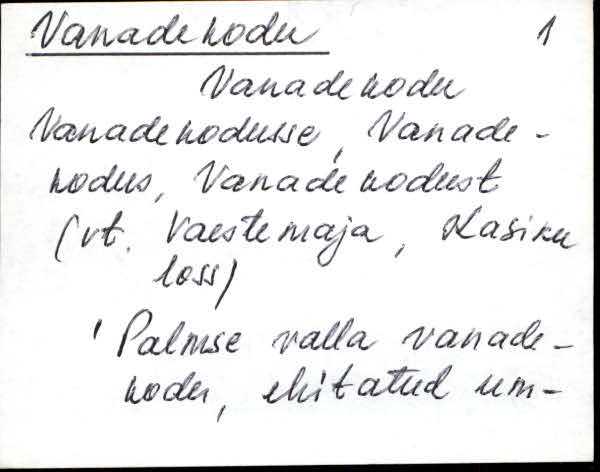 Vanadekodu 1
Vanadekodu
Vanadekodusse, Vanade-
kodus, Vanadekodust
(vt. Vaestemaja, Kasiku
loss)
' Palmse valla vanade-
kodu, ehitatud um-